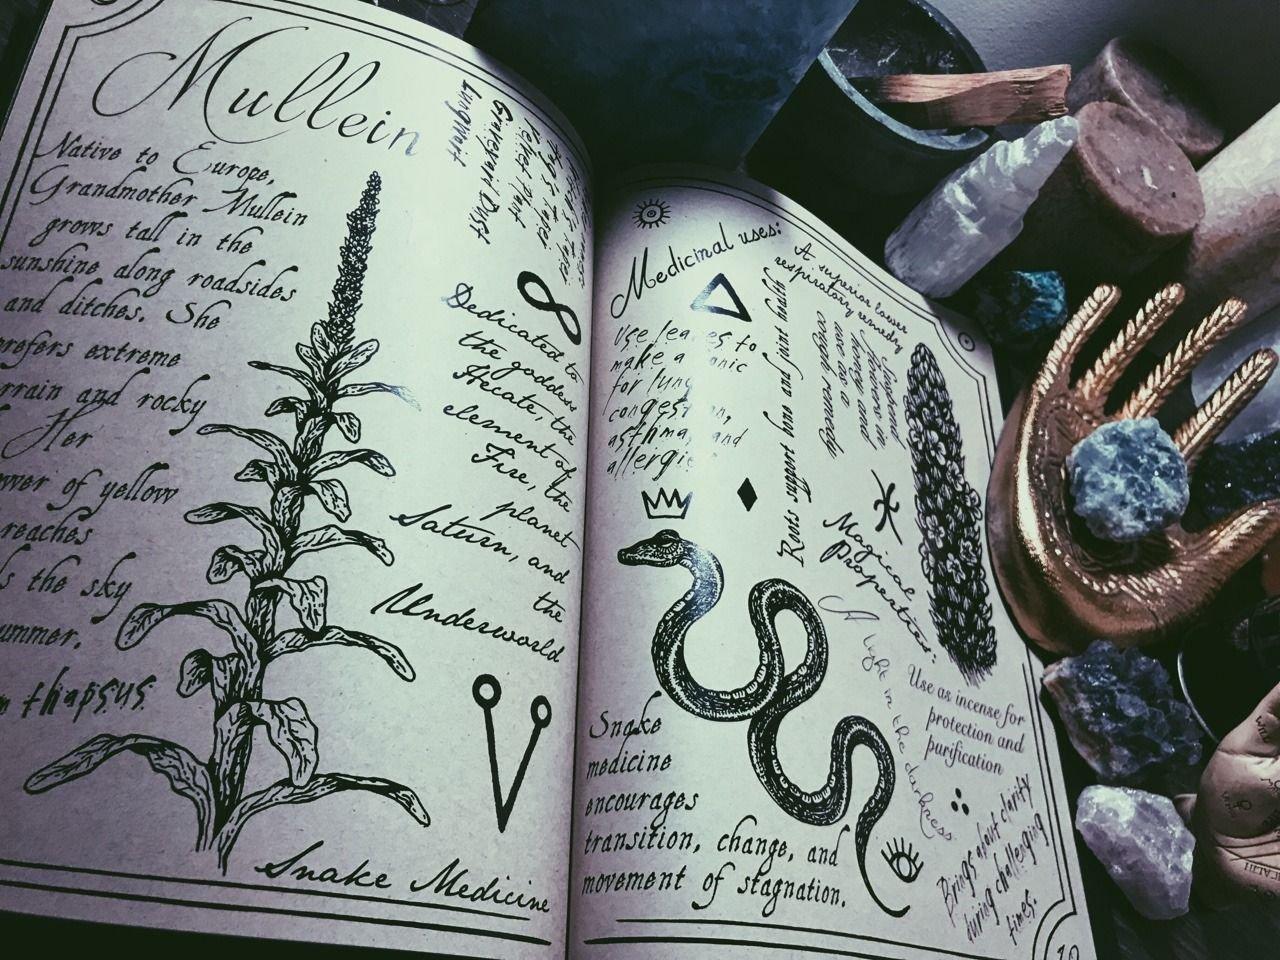 Mullein
Native to Europe,
Grandmother Mullein
grows tall in the
sunshine along roadsides
and ditches. She
extreme
and rocky
Her
of yellow
reaches
the sky
thapsus
Lungwort
Graveyard Dust
Velvet Plant
Dedicated to
the goddess
Hecate, the
element of
Fire, the
planet
Saturn, and
the
Underworld
Snake Medicine
Medicinal uses:
Use leaves to
make a tonic
for lung
congestion,
asthma, and
allergies
Roots support bone and joint health
A superior
respiratory remedy
honey and
use as a
cough remedy
Magical
Properties:
A light in the darkness
Use as incense for
protection and
purification
Brings about clarity
during challenging
times.
Snake
medicine
encourages
transition, change, and
movement of stagnation.